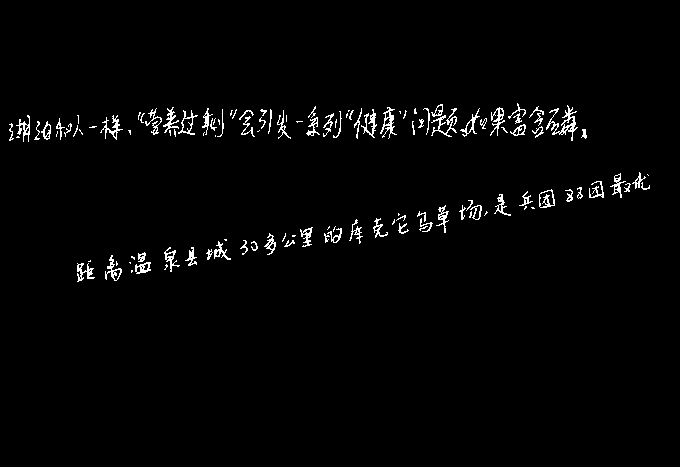 湖泊和人一样，“营养过剩”会引发一系列“健康”问题。如果富含磷、
距离温泉县城30多公里的库克它乌草场，是兵团88团最优